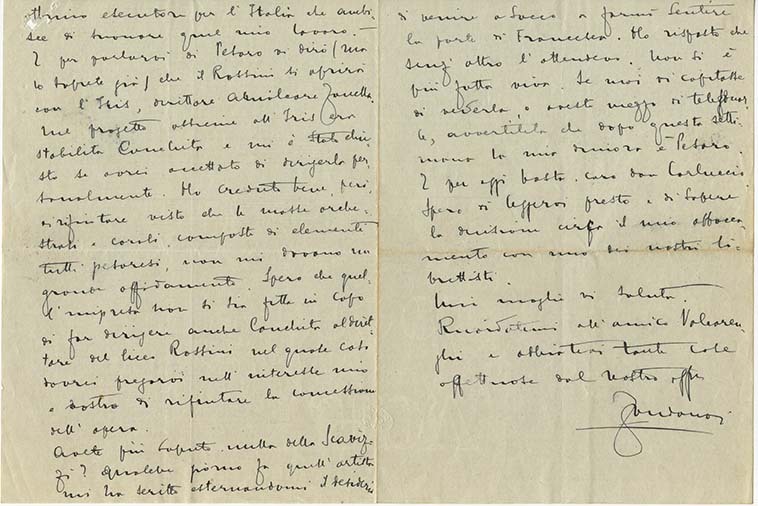 ultimo esecutori per l'Italia che ambi-
sce di suonare quel mio lavoro.—
E per parlarvi di Pesaro vi dirò (ma
lo saprete già) che il Rossini si aprirà
con l'Iris, direttore Amilcare Zanella.
Nel progetto assieme all'Iris era
stabilita Conchita e mi è stato chie-
sto se avrei accettato di dirigerla per-
sonalmente. Ho creduto bene, però,
di rifiutare visto che le masse orche-
strali e corali, composte di elementi
tutti pesaresi, non mi davano un
grande affidamento. Spero che quel-
l'impresa non si sia fitta in capo
di far dirigere anche Conchita al diret-
tore del liceo Rossini nel quale caso
dovrei pregarvi nell'interesse mio
e vostro di rifiutare la concessione
dell'opera.
Avete più saputo nulla della Scaviz-
zi? Qualche giorno fa quell'artista
mi ha scritto esternandomi il desiderio
di venire a Sacco a farmi sentire
la parte di Francesca. Ho risposto che
senz'altro l'attendevo. Non si è
più fatta viva. Se mai vi capitasse
di vederla, o aveste mezzo di telefonar-
le, avvertitela che dopo questa setti-
mana la mia dimora è Pesaro.
E per oggi basta, caro don Carluccio
Spero di leggervi presto e di sapere
la decisione circa il mio abbocca-
mento con uno dei nostri li-
brettisti.
Mia moglie vi saluta.
Ricordatemi all'amico Valcaren-
ghi e abbiatevi tante cose
affettuose dal vostro aff.
Zandonai